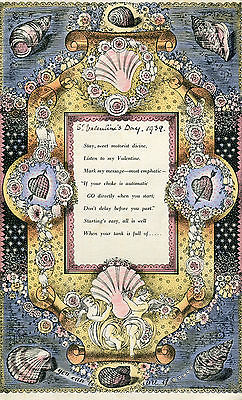 St Valentine's Day, 1939.
Stay, sweet motorist divine,
Listen to my Valentine.
Mark my message—most emphatic—
"If your choke is automatic
GO directly when you start,
Don't delay before you part."
Starting's easy, all is well
When your tank is full of.....
you can